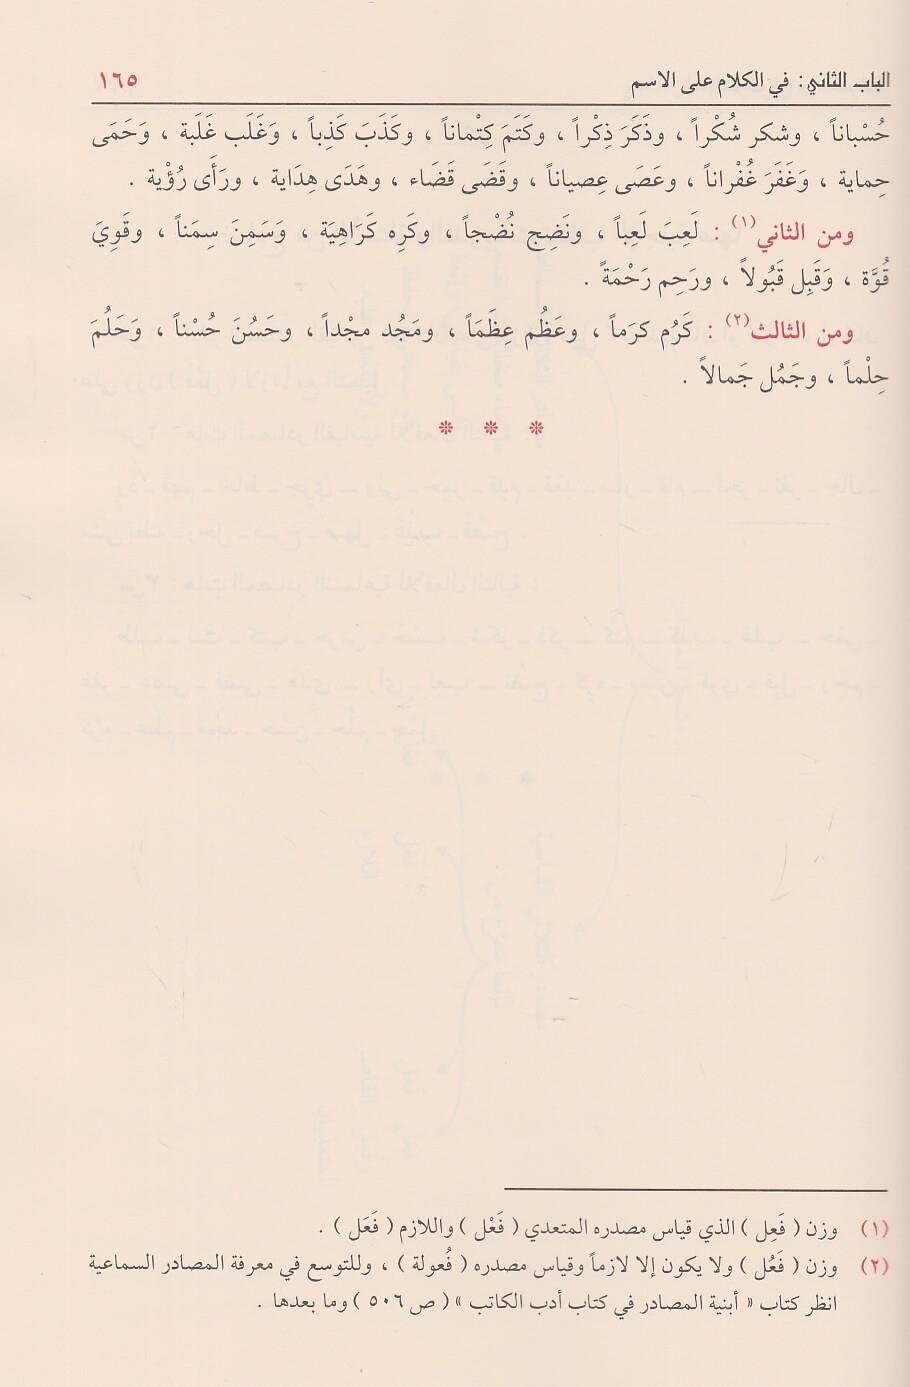 الباب الثاني: في الكلام على الاسم ١٦٥
حُسْباناً ، وشكر شُكْراً ، وذَكَرَ ذِكْراً ، وكَتَمَ كِتْماناً ، وكَذَبَ كَذِباً ، وَغَلَب غَلَبة ، وَحَمَى
حِماية ، وَغَفَرَ غُفْراناً ، وعَصَى عِصياناً ، وقَضَى قَضَاء ، وهَدَى هِدَاية ، ورَأَى رُؤْية .
ومن الثاني(١) : لَعِبَ لَعِباً ، ونَضِج نُضْجاً ، وكَرِه كَرَاهِيَة ، وَسَمِنَ سِمَناً ، وقَوِيَ
قُوَّة ، وَقَبِل قَبُولاً ، ورَحِم رَحْمَةً .
ومن الثالث(٢) : كَرُم كرَماً ، وعَظُم عِظَمَاً ، ومَجُد مجْداً ، وحَسُنَ حُسْناً ، وَحَلُمَ
حِلْماً ، وجَمُل جَمالاً .
* * *
(١) وزن ( فَعِل ) الذي قياس مصدره المتعدي ( فَعْل ) واللازم ( فَعَل ) .
(٢) وزن ( فَعُل ) ولا يكون إلا لازماً وقياس مصدره ( فُعولة ) ، وللتوسع في معرفة المصادر السماعية
انظر كتاب « أبنية المصادر في كتاب أدب الكاتب » ( ص ٥٠٦ ) وما بعدها .